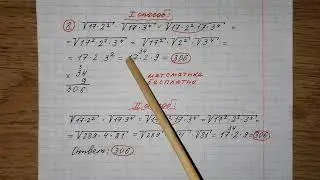 I способ:
⑧ √17·2² · √17·3⁴ = √17·2²·17·3⁴ =
= √17²·2²·3⁴ = √17² · √2² · √3⁴ =
= 17·2·3² = 17·2·9 = 306
34
× 34
9
306
математика
бесплатно
II способ:
√17·2² · √17·3⁴ = √17·2²·17·3⁴ = √17²·2²·3⁴ =
= √289·4·81 = √289 · √4 · √81 = 17·2·9 = 306
Ответ: 306